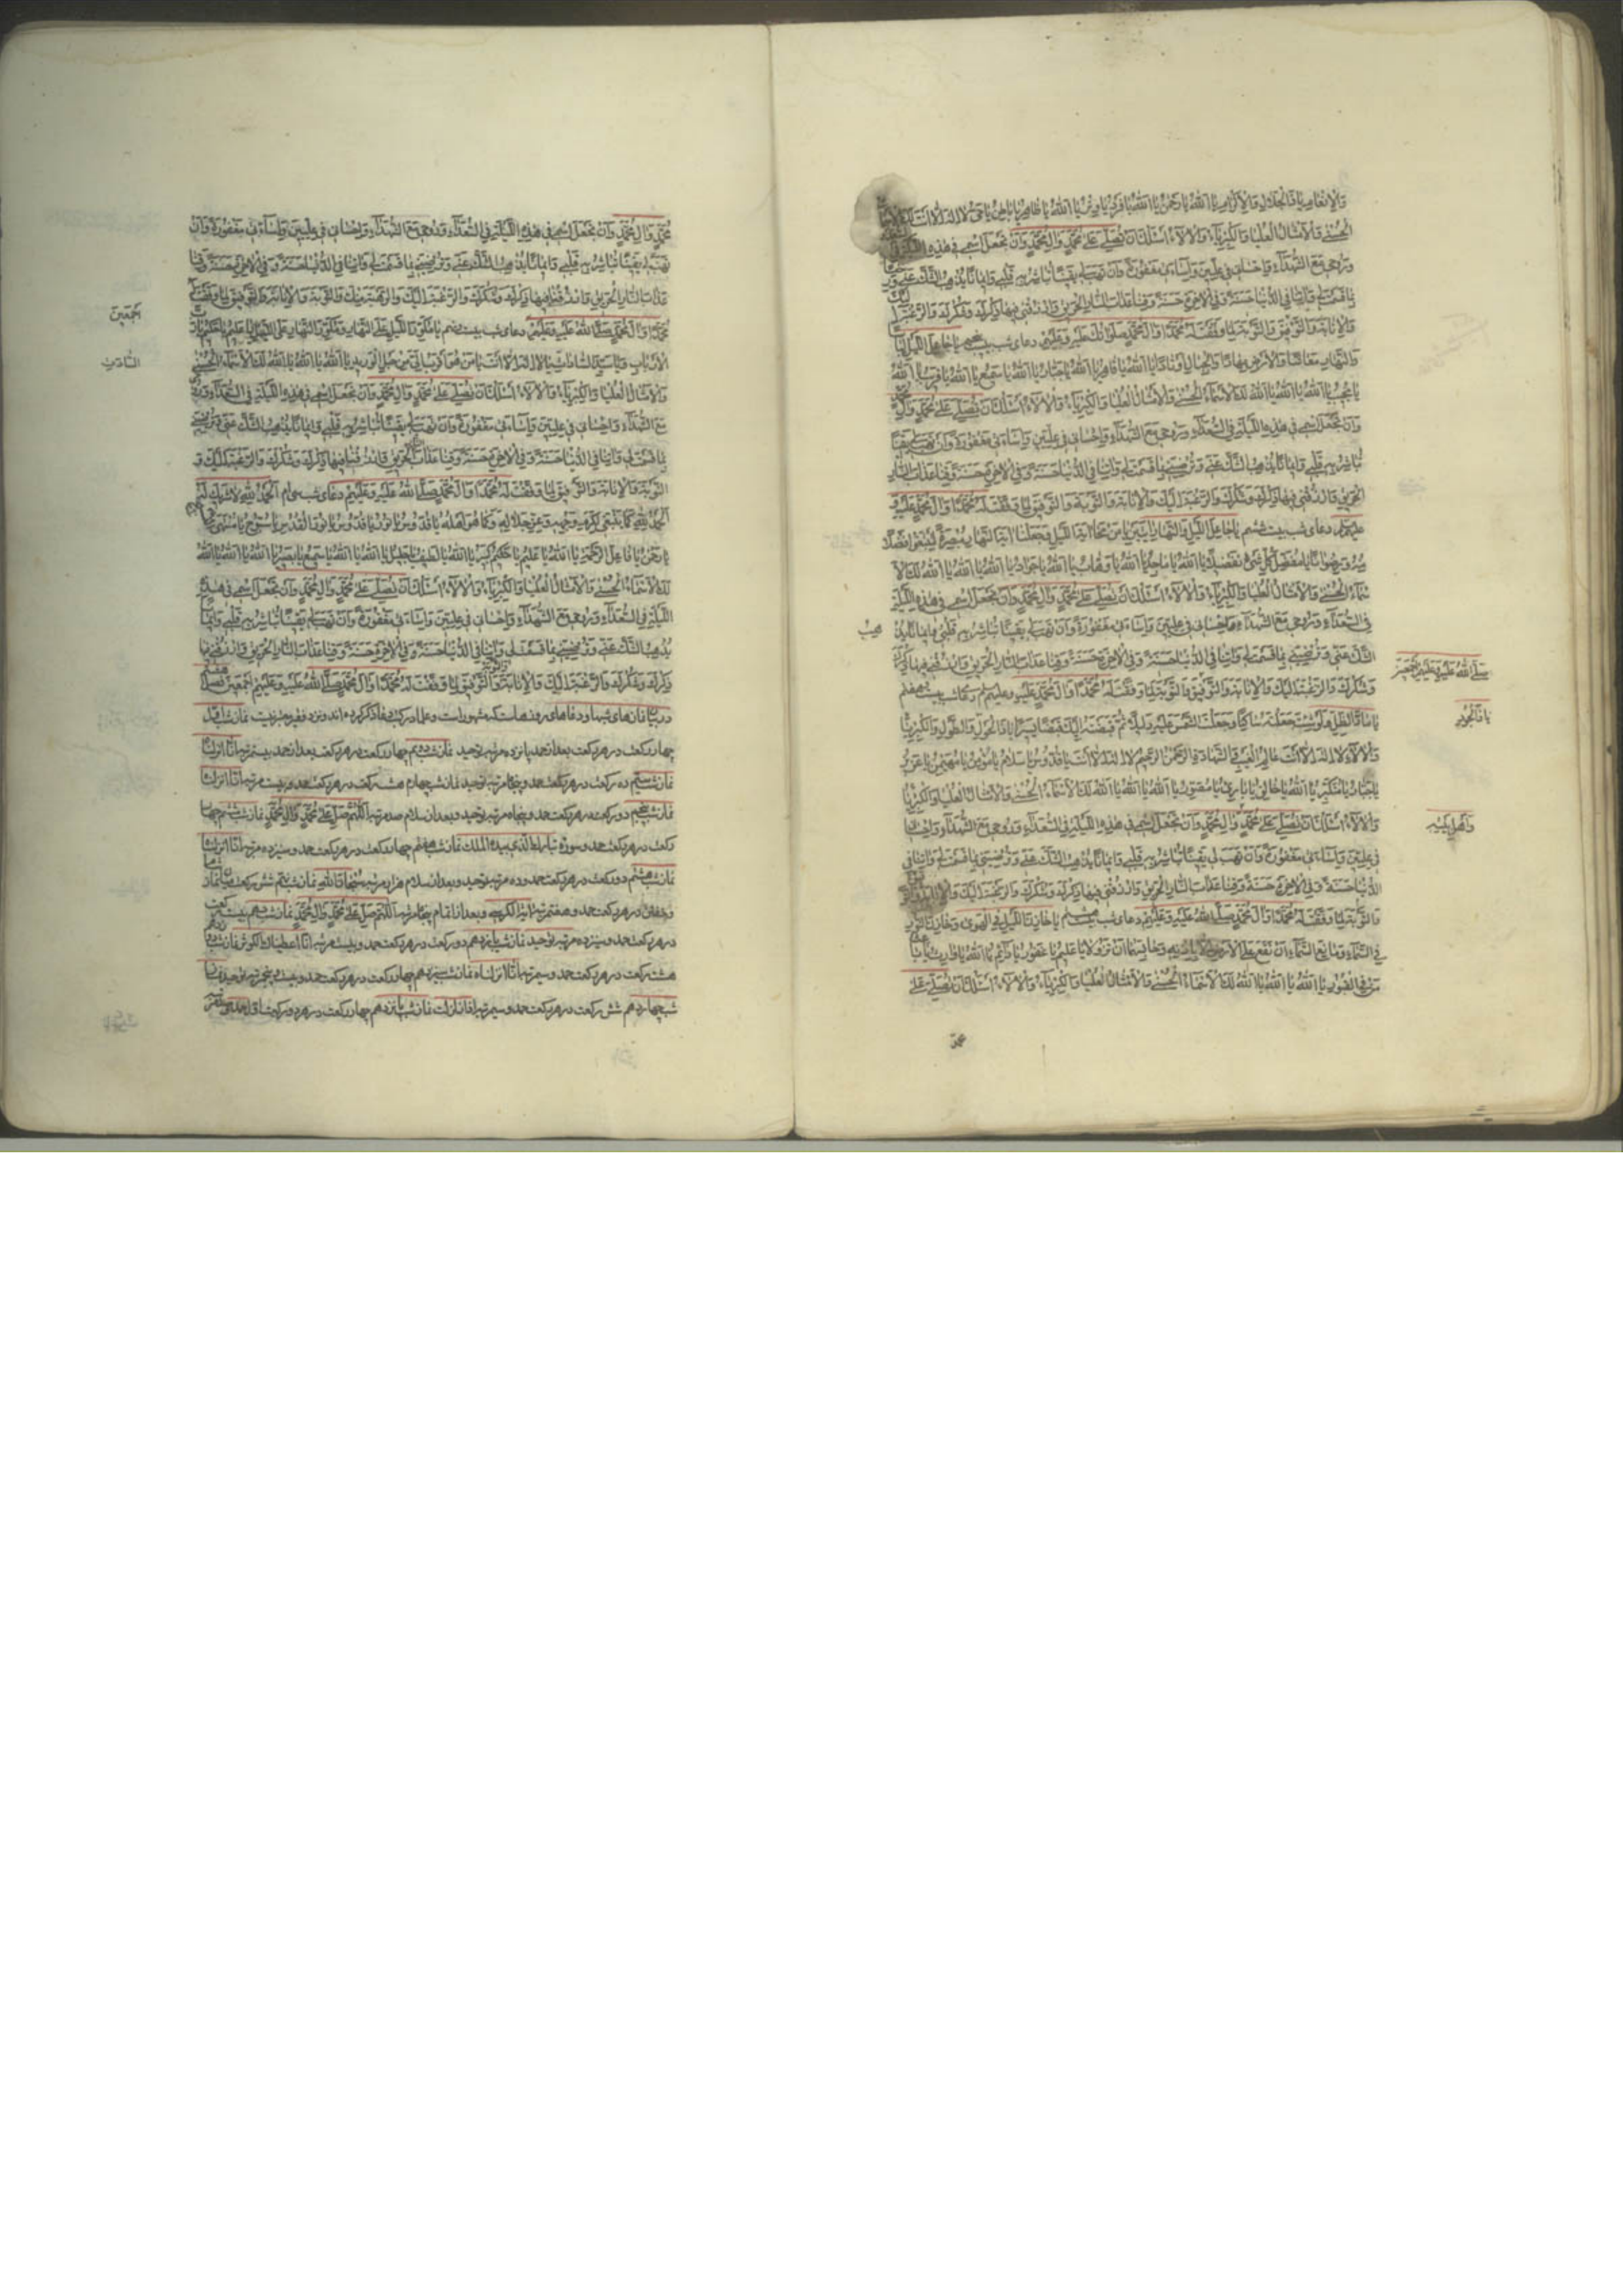 وَالاِنعامِ یا ذَا الجَلالِ وَالاِکرامِ یا اَللهُ یا رَحمٰنُ یا اَللهُ یا فَردُ یا وِترُ یا اَللهُ یا ظاهِرُ یا باطِنُ یا حَیُّ لا اِلٰهَ اِلّا اَنتَ لَکَ الاَسماءُ
الحُسنیٰ وَالاَمثالُ العُلیا وَالکِبرِیاءُ وَالآلاءُ اَسئَلُکَ اَن تُصَلِّیَ عَلیٰ مُحَمَّدٍ وَآلِ مُحَمَّدٍ وَاَن تَجعَلَ اسمی فی هٰذِهِ
وَروحی مَعَ الشُّهَداءِ وَاِحسانی فی عِلِّیّینَ وَاِساءَتی مَغفُورَةً وَاَن تَهَبَ لی یَقیناً تُباشِرُ بِهِ قَلبی وَایماناً یُذهِبُ الشَّکَّ عَنّی
بِما قَسَمتَ لی وَآتِنا فِی الدُّنیا حَسَنَةً وَفِی الآخِرَةِ حَسَنَةً وَقِنا عَذابَ النّارِ الحَریقِ وَارزُقنی فیها ذِکرَکَ وَشُکرَکَ وَالرَّغبَةَ اِلَیکَ
وَالاِنابَةَ وَالتَّوفیقَ وَالتَّوبَةَ لِما وَفَّقتَ لَهُ مُحَمَّداً وَآلَ مُحَمَّدٍ صَلَواتُکَ عَلَیهِ وَعَلَیهِم دعای شب بیست پنجم یا جاعِلَ اللَّیلِ لِباساً
وَالنَّهارِ مَعاشاً وَالاَرضِ مِهاداً وَالجِبالِ اَوتاداً یا اَللهُ یا قاهِرُ یا اَللهُ یا جَبّارُ یا اَللهُ یا سَمیعُ یا اَللهُ یا قَریبُ یا اَللهُ
یا مُجیبُ یا اَللهُ یا اَللهُ یا اَللهُ لَکَ الاَسماءُ الحُسنیٰ وَالاَمثالُ العُلیا وَالکِبرِیاءُ وَالآلاءُ اَسئَلُکَ اَن تُصَلِّیَ عَلیٰ مُحَمَّدٍ وَآلِ مُحَمَّدٍ
وَاَن تَجعَلَ اسمی فی هٰذِهِ اللَّیلَةِ فِی السُّعَداءِ وَروحی مَعَ الشُّهَداءِ وَاِحسانی فی عِلِّیّینَ وَاِساءَتی مَغفُورَةً وَاَن تَهَبَ لی یَقیناً
تُباشِرُ بِهِ قَلبی وَایماناً یُذهِبُ الشَّکَّ عَنّی وَتُرضِیَنی بِما قَسَمتَ لی وَآتِنا فِی الدُّنیا حَسَنَةً وَفِی الآخِرَةِ حَسَنَةً وَقِنا عَذابَ النّارِ
الحَریقِ وَارزُقنی فیها ذِکرَکَ وَشُکرَکَ وَالرَّغبَةَ اِلَیکَ وَالاِنابَةَ وَالتَّوبَةَ وَالتَّوفیقَ لِما وَفَّقتَ لَهُ مُحَمَّداً وَآلَ مُحَمَّدٍ عَلَیهِ وَ
عَلَیهِم دعای شب بیست ششم یا جاعِلَ اللَّیلِ وَالنَّهارِ آیَتَینِ یا مَن مَحا آیَةَ اللَّیلِ وَجَعَلَ آیَةَ النَّهارِ مُبصِرَةً لِتَبتَغوا فَضلاً
مِنهُ وَرِضواناً یا مُفَصِّلَ کُلِّ شَیءٍ تَفصیلاً یا اَللهُ یا ماجِدُ یا اَللهُ یا وَهّابُ یا اَللهُ یا جَوادُ یا اَللهُ یا اَللهُ یا اَللهُ لَکَ الاَ
سماءُ الحُسنیٰ وَالاَمثالُ العُلیا وَالکِبرِیاءُ وَالآلاءُ اَسئَلُکَ اَن تُصَلِّیَ عَلیٰ مُحَمَّدٍ وَآلِ مُحَمَّدٍ وَاَن تَجعَلَ اسمی فی هٰذِهِ اللَّیلَةِ
فِی السُّعَداءِ وَروحی مَعَ الشُّهَداءِ وَاِحسانی فی عِلِّیّینَ وَاِساءَتی مَغفُورَةً وَاَن تَهَبَ لی یَقیناً تُباشِرُ بِهِ قَلبی وَایماناً یُذ
هِبُ
الشَّکَّ عَنّی وَتُرضِیَنی بِما قَسَمتَ لی وَآتِنا فِی الدُّنیا حَسَنَةً وَفِی الآخِرَةِ حَسَنَةً وَقِنا عَذابَ النّارِ الحَریقِ وَارزُقنی فیها ذِکرَکَ
صَلَّی اللهُ عَلَیهِ وَعَلَیهِم اَجمَعینَ
وَشُکرَکَ وَالرَّغبَةَ اِلَیکَ وَالاِنابَةَ وَالتَّوفیقَ وَالتَّوبَةَ لِما وَفَّقتَ لَهُ مُحَمَّداً وَآلَ مُحَمَّدٍ عَلَیهِ وعلیهم سلم دعای شب بیست هفتم
یا مادَّ الظِّلِّ وَلَو شِئتَ جَعَلتَهُ ساکِناً وَجَعَلتَ الشَّمسَ عَلَیهِ دَلیلاً ثُمَّ قَبَضتَهُ اِلَیکَ قَبضاً یَسیراً یا ذَا الحَولِ وَالطَّولِ وَالکِبرِیاءِ
یا ذَا الجُودِ
وَالآلاءِ لا اِلٰهَ اِلّا اَنتَ عالِمُ الغَیبِ وَالشَّهادَةِ الرَّحمٰنُ الرَّحیمُ لا اِلٰهَ اِلّا اَنتَ یا قُدُّوسُ یا سَلامُ یا مُؤمِنُ یا مُهَیمِنُ یا عَزیزُ
یا جَبّارُ یا مُتَکَبِّرُ یا اَللهُ یا خالِقُ یا بارِئُ یا مُصَوِّرُ یا اَللهُ یا اَللهُ یا اَللهُ لَکَ الاَسماءُ الحُسنیٰ وَالاَمثالُ العُلیا وَالکِبرِیاءُ
وَالآلاءُ اَسئَلُکَ اَن تُصَلِّیَ عَلیٰ مُحَمَّدٍ وَآلِ مُحَمَّدٍ وَاَن تَجعَلَ اسمی فی هٰذِهِ اللَّیلَةِ فِی السُّعَداءِ وَروحی مَعَ الشُّهَداءِ وَاِحسانی
فی عِلِّیّینَ وَاِساءَتی مَغفُورَةً وَاَن تَهَبَ لی یَقیناً تُباشِرُ بِهِ قَلبی وَایماناً یُذهِبُ الشَّکَّ عَنّی وَتُرضِیَنی بِما قَسَمتَ لی وَآتِنا فی
الدُّنیا حَسَنَةً وَفِی الآخِرَةِ حَسَنَةً وَقِنا عَذابَ النّارِ الحَریقِ وَارزُقنی فیها ذِکرَکَ وَشُکرَکَ وَالرَّغبَةَ اِلَیکَ وَالاِنابَةَ
وَالتَّوبَةَ لِما وَفَّقتَ لَهُ مُحَمَّداً وَآلَ مُحَمَّدٍ صَلَّی اللهُ عَلَیهِ وَعَلَیهِم دعای شب بیست هشتم یا خازِنَ اللَّیلِ فِی الهَواءِ وَخازِنَ النُّورِ
فِی السَّماءِ وَمانِعَ السَّماءِ اَن تَقَعَ عَلَی الاَرضِ اِلّا بِاِذنِهِ وَحابِسَهُما اَن تَزُولا یا عَلیمُ یا غَفُورُ یا دائِمُ یا اَللهُ یا وارِثُ یا باعِثَ
مَن فِی القُبُورِ یا اَللهُ یا اَللهُ یا اَللهُ لَکَ الاَسماءُ الحُسنیٰ وَالاَمثالُ العُلیا وَالکِبرِیاءُ وَالآلاءُ اَسئَلُکَ اَن تُصَلِّیَ عَلیٰ
محمد
مُحَمَّدٍ وَآلِ مُحَمَّدٍ وَاَن تَجعَلَ اسمی فی هٰذِهِ اللَّیلَةِ فِی السُّعَداءِ وَروحی مَعَ الشُّهَداءِ وَاِحسانی فی عِلِّیّینَ وَاِساءَتی مَغفُورَةً وَاَن
تَهَبَ لی یَقیناً تُباشِرُ بِهِ قَلبی وَایماناً یُذهِبُ الشَّکَّ عَنّی وَتُرضِیَنی بِما قَسَمتَ لی وَآتِنا فِی الدُّنیا حَسَنَةً وَفِی الآخِرَةِ حَسَنَةً وَقِنا
عَذابَ النّارِ الحَریقِ وَارزُقنی فیها ذِکرَکَ وَشُکرَکَ وَالرَّغبَةَ اِلَیکَ وَالتَّوبَةَ وَالاِنابَةَ وَالتَّوفیقَ لِما وَفَّقتَ لَهُ
مُحَمَّداً وَآلَ مُحَمَّدٍ صَلَّی اللهُ عَلَیهِ وَعَلَیهِم دعای شب بیست نهم یا مُکَوِّرَ اللَّیلِ عَلَی النَّهارِ وَمُکَوِّرَ النَّهارِ عَلَی اللَّیلِ یا عَلیمُ یا حَکیمُ یا رَبَّ
اَجمَعینَ
الاَربابِ وَیا سَیِّدَ السّاداتِ لا اِلٰهَ اِلّا اَنتَ یا مَن هُوَ اَقرَبُ اِلَیَّ مِن حَبلِ الوَریدِ یا اَللهُ یا اَللهُ یا اَللهُ لَکَ الاَسماءُ الحُسنیٰ
السّادات
وَالاَمثالُ العُلیا وَالکِبرِیاءُ وَالآلاءُ اَسئَلُکَ اَن تُصَلِّیَ عَلیٰ مُحَمَّدٍ وَآلِ مُحَمَّدٍ وَاَن تَجعَلَ اسمی فی هٰذِهِ اللَّیلَةِ فِی السُّعَداءِ وَروحی
مَعَ الشُّهَداءِ وَاِحسانی فی عِلِّیّینَ وَاِساءَتی مَغفُورَةً وَاَن تَهَبَ لی یَقیناً تُباشِرُ بِهِ قَلبی وَایماناً یُذهِبُ الشَّکَّ عَنّی وَتُرضِیَنی
بِما قَسَمتَ لی وَآتِنا فِی الدُّنیا حَسَنَةً وَفِی الآخِرَةِ حَسَنَةً وَقِنا عَذابَ الحَریقِ وَارزُقنی فیها ذِکرَکَ وَشُکرَکَ وَالرَّغبَةَ اِلَیکَ وَ
التَّوبَةَ وَالاِنابَةَ وَالتَّوفیقَ لِما وَفَّقتَ لَهُ مُحَمَّداً وَآلَ مُحَمَّدٍ صَلَّی اللهُ عَلَیهِ وَعَلَیهِم دعای شب سی ام اَلحَمدُ لِلّهِ لا شَریکَ لَهُ
اَلحَمدُ لِلّهِ کَما یَنبَغی لِکَرَمِ وَجهِهِ وَعِزِّ جَلالِهِ وَکَما هُوَ اَهلُهُ یا قُدُّوسُ یا نُورُ یا قُدُّوسُ یا نُورَ القُدسِ یا سُبُّوحُ یا مُنتَهَی
یا رَحمٰنُ یا فاعِلَ الرَّحمَةِ یا اَللهُ یا عَلیمُ یا حَکیمُ یا کَبیرُ یا اَللهُ یا لَطیفُ یا جَلیلُ یا اَللهُ یا اَللهُ یا سَمیعُ یا بَصیرُ یا اَللهُ یا اَللهُ یا اَللهُ
لَکَ الاَسماءُ الحُسنیٰ وَالاَمثالُ العُلیا وَالکِبرِیاءُ وَالآلاءُ اَسئَلُکَ اَن تُصَلِّیَ عَلیٰ مُحَمَّدٍ وَآلِ مُحَمَّدٍ وَاَن تَجعَلَ اسمی فی هٰذِهِ
اللَّیلَةِ فِی السُّعَداءِ وَروحی مَعَ الشُّهَداءِ وَاِحسانی فی عِلِّیّینَ وَاِساءَتی مَغفُورَةً وَاَن تَهَبَ لی یَقیناً تُباشِرُ بِهِ قَلبی وَایماناً
یُذهِبُ الشَّکَّ عَنّی وَتُرضِیَنی بِما قَسَمتَ لی وَآتِنا فِی الدُّنیا حَسَنَةً وَفِی الآخِرَةِ حَسَنَةً وَقِنا عَذابَ النّارِ الحَریقِ وَارزُقنی فیها
ذِکرَکَ وَشُکرَکَ وَالرَّغبَةَ اِلَیکَ وَالاِنابَةَ وَالتَّوبَةَ وَالتَّوفیقَ لِما وَفَّقتَ لَهُ مُحَمَّداً وَآلَ مُحَمَّدٍ صَلَّی اللهُ عَلَیهِ وَعَلَیهِم اَجمَعینَ فصل هفتم
در بیان نمازهای شبها و دعاهای روزهاست که مشهور است و علما در کتب دعا ذکر کرده اند و نزد فقیر معتبر نیست نماز شب اول
چهار رکعت در هر رکعت بعد از حمد پانزده مرتبه توحید نماز شب دویم چهار رکعت در هر رکعت بعد از حمد بیست مرتبه انا انزلناه
نماز شب سیم ده رکعت در هر رکعت حمد و پنجاه مرتبه توحید نماز شب چهارم هشت رکعت در هر رکعت حمد و بیست مرتبه انا انزلناه
نماز شب پنجم دو رکعت در هر رکعت حمد و پنجاه مرتبه توحید و بعد از سلام صد مرتبه اللهم صل علی محمد وآل محمد نماز شب ششم چهار
رکعت در هر رکعت حمد و سوره تبارک الذی بیده الملک نماز شب هفتم چهار رکعت در هر رکعت حمد و سیزده مرتبه انا انزلناه
نماز شب هشتم دو رکعت در هر رکعت حمد و ده مرتبه توحید و بعد از سلام هزار مرتبه سبحان الله نماز شب نهم شش رکعت میان نماز شام
و خفتن در هر رکعت حمد و هفت مرتبه آیة الکرسی و بعد از اتمام پنجاه مرتبه اللهم صل علی محمد وآل محمد نماز شب دهم بیست رکعت
در هر رکعت حمد و سیزده مرتبه توحید نماز شب یازدهم دو رکعت در هر رکعت حمد و بیست مرتبه انا اعطیناک الکوثر نماز شب دوازدهم
هشت رکعت در هر رکعت حمد و سی مرتبه انا انزلناه نماز شب سیزدهم چهار رکعت در هر رکعت حمد و بیست و پنج مرتبه توحید نماز
شب چهاردهم شش رکعت در هر رکعت حمد و سی مرتبه اذا زلزلت نماز شب پانزدهم چهار رکعت در هر دو رکعت اول حمد و